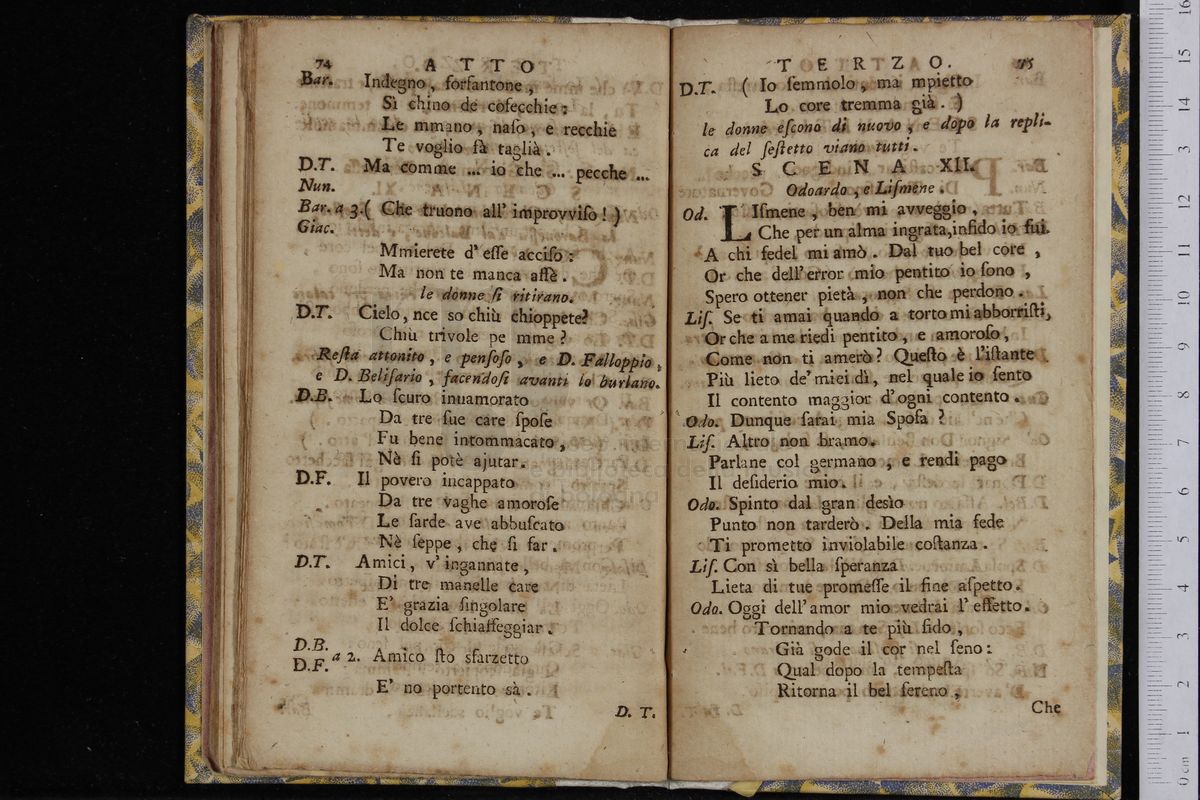 74 A T T O
Bar. Indegno, forfantone,
Sì chino de cofecchie:
Le mmano, naſo, e recchie
Te voglio fà taglià.
D.T. Ma comme ... io che ... pecche ...
Nun.
Bar. a 3. ( Che truono all' improvviſo! )
Giac.
Mmierete d' eſſe acciſo:
Ma non te manca aſſè.
le donne ſi ritirano.
D.T. Cielo, nce so chiù chioppete?
Chiù trivole pe mme?
Reſta attonito, e penſoſo, e D. Falloppio,
e D. Beliſario, facendoſi avanti lo burlano.
D.B. Lo ſcuro innamorato
Da tre ſue care ſpoſe
Fu bene intommacato,
Nè ſi potè ajutar.
D.F. Il povero incappato
Da tre vaghe amoroſe
Le ſarde ave abbuſcato
Nè ſeppe, che ſi far.
D.T. Amici, v' ingannate,
Di tre manelle care
E' grazia ſingolare
Il dolce ſchiaffeggiar.
D.B.
D.F. a 2. Amico ſto sfarzetto
E' no portento sà.
D. T.
T E R Z O. 75
D.T. ( Io ſemmiolo, ma mpietto
Lo core tremma già. )
le donne eſcono di nuovo, e dopo la repli-
ca del ſeſtetto viano tutti.
S C E N A XII.
Odoardo, e Liſmene.
Od. LIſmene, ben mi avveggio,
Che per un alma ingrata, infido io fui.
A chi fedel mi amò. Dal tuo bel core,
Or che dell' error mio pentito io ſono,
Spero ottener pietà, non che perdono.
Liſ. Se ti amai quando a torto mi abborriſti,
Or che a me riedi pentito, e amoroſo,
Come non ti amerò? Queſto è l'iſtante
Più lieto de' miei dì, nel quale io ſento
Il contento maggior d' ogni contento.
Odo. Dunque ſarai mia Spoſa?
Liſ. Altro non bramo.
Parlane col germano, e rendi pago
Il deſiderio mio.
Odo. Spinto dal gran desìo
Punto non tarderò. Della mia fede
Ti prometto inviolabile coſtanza.
Liſ. Con sì bella ſperanza
Lieta di tue promeſſe il fine aſpetto.
Odo. Oggi dell' amor mio vedrai l' effetto.
Tornando a te più fido,
Già gode il cor nel ſeno:
Qual dopo la tempeſta
Ritorna il bel ſereno,
Che